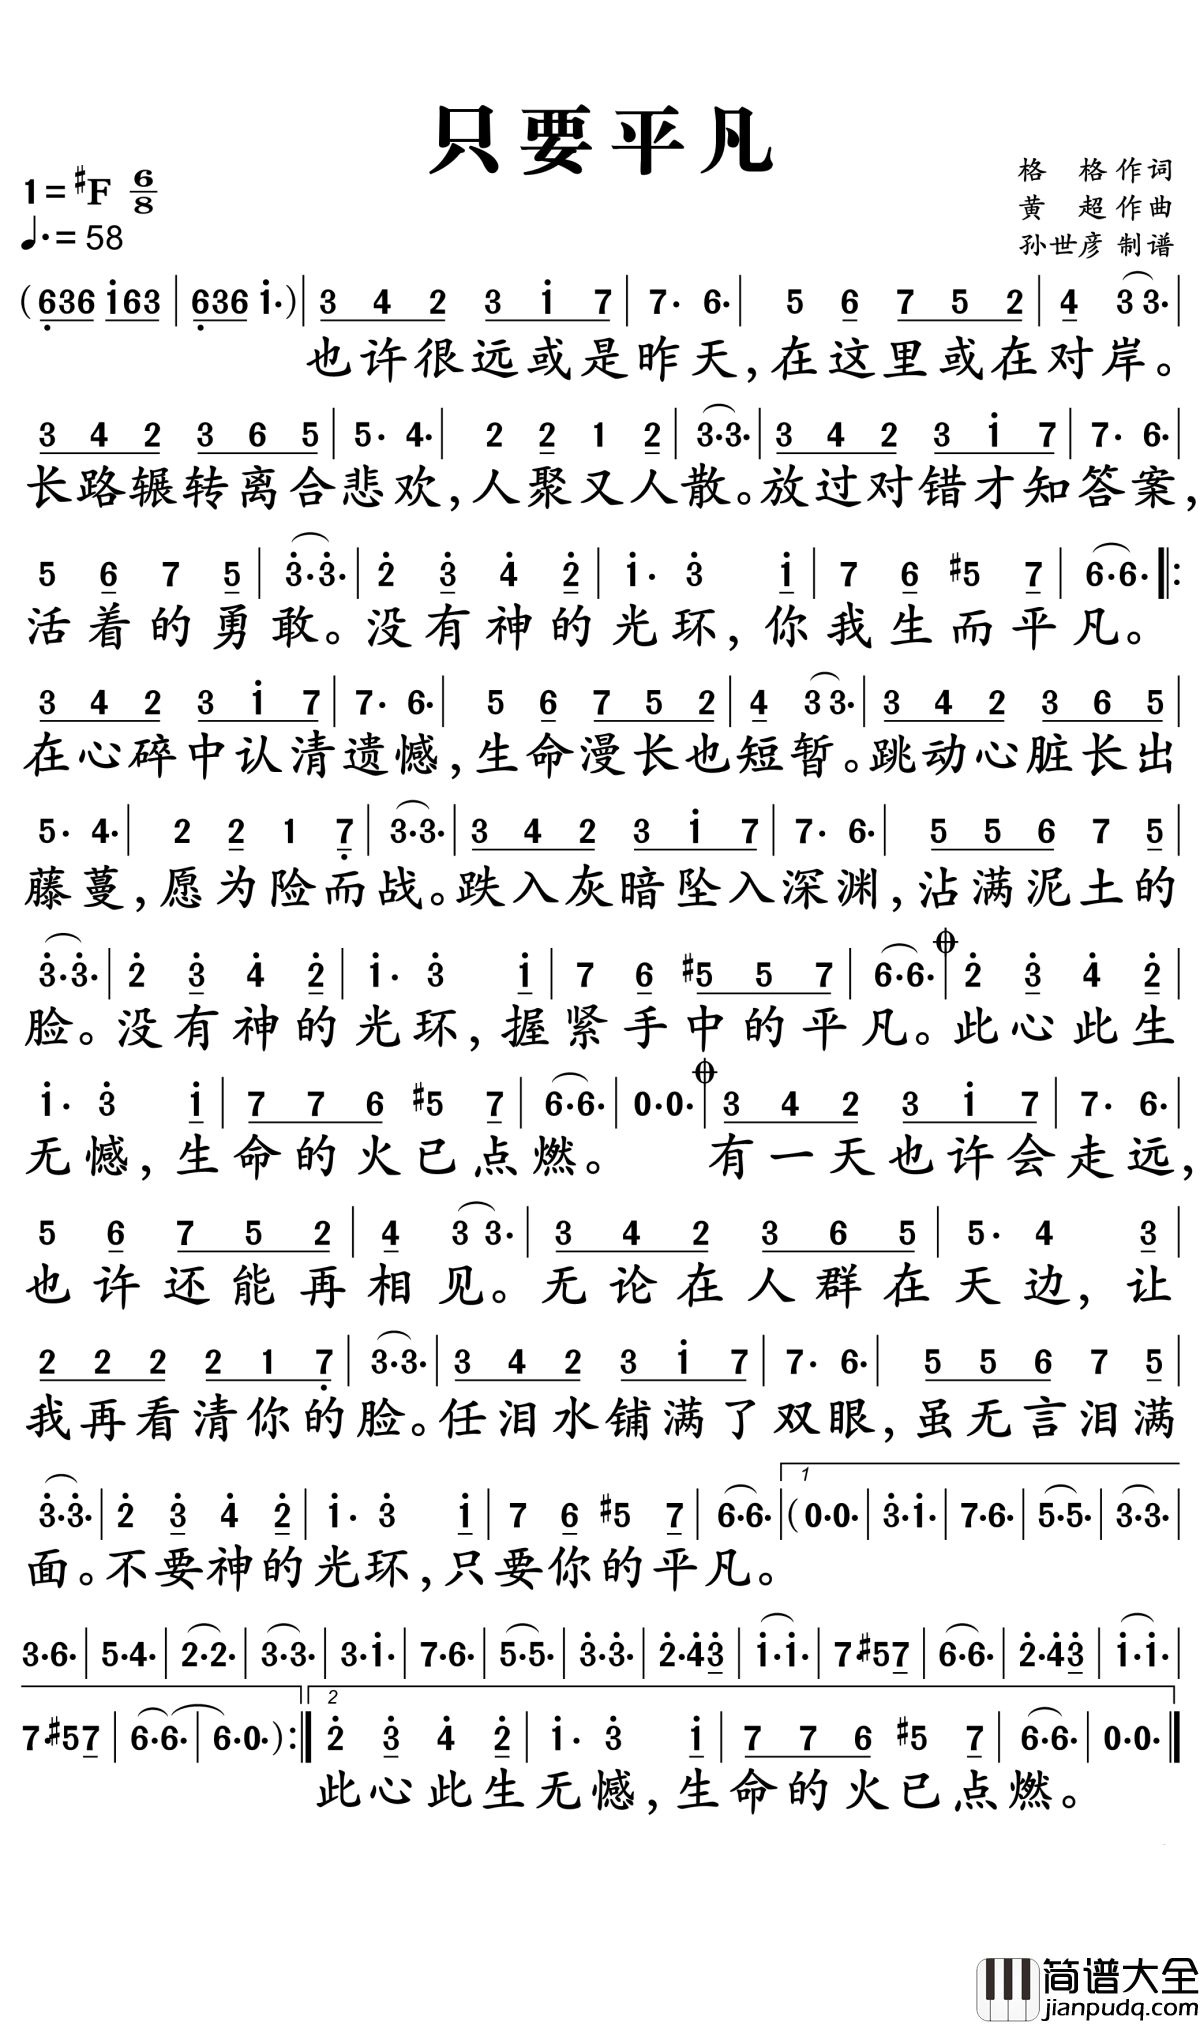 只要平凡
1=#F 6/8
♩.=58
格 格 作词
黄 超 作曲
孙世彦 制谱
(636 i63 | 636 i·) | 3 4 2 3 i 7 | 7· 6· | 5 6 7 5 2 | 4 3 3· |
也许很远或是昨天,在这里或在对岸。
3 4 2 3 6 5 | 5· 4· | 2 2 1 2 | 3·3· | 3 4 2 3 i 7 | 7· 6· |
长路辗转离合悲欢,人聚又人散。放过对错才知答案,
5 6 7 5 | 3·3· | 2 3 4 2 | i· 3 i | 7 6 #5 7 | 6·6· ‖:
活着的勇敢。没有神的光环,你我生而平凡。
3 4 2 3 i 7 | 7· 6· | 5 6 7 5 2 | 4 3 3· | 3 4 2 3 6 5 |
在心碎中认清遗憾,生命漫长也短暂。跳动心脏长出
5· 4· | 2 2 1 7 | 3·3· | 3 4 2 3 i 7 | 7· 6· | 5 5 6 7 5 |
藤蔓,愿为险而战。跌入灰暗坠入深渊,沾满泥土的
3·3· | 2 3 4 2 | i· 3 i | 7 6 #5 5 7 | 6·6· | 2 3 4 2 |
脸。没有神的光环,握紧手中的平凡。此心此生
i· 3 i | 7 7 6 #5 7 | 6·6· | 0·0· | 3 4 2 3 i 7 | 7· 6· |
无憾,生命的火已点燃。 有一天也许会走远,
5 6 7 5 2 | 4 3 3· | 3 4 2 3 6 5 | 5· 4 3 |
也许还能再相见。无论在人群在天边,让
2 2 2 2 1 7 | 3·3· | 3 4 2 3 i 7 | 7· 6· | 5 5 6 7 5 |
我再看清你的脸。任泪水铺满了双眼,虽无言泪满
1
3·3· | 2 3 4 2 | i· 3 i | 7 6 #5 7 | 6·6· | (0·0· | 3·i· | 7·6· | 5·5· | 3·3· |
面。不要神的光环,只要你的平凡。
3·6· | 5·4· | 2·2· | 3·3· | 3·i· | 7·6· | 5·5· | 3·3· | 2·43 | i·i· | 7·#57 | 6·6· | 2·43 | i·i· |
2
7·#57 | 6·6· | 6·0·) :‖ 2 3 4 2 | i· 3 i | 7 7 6 #5 7 | 6·6· | 0·0· ‖
此心此生无憾,生命的火已点燃。
简谱大全
jianpudq.com